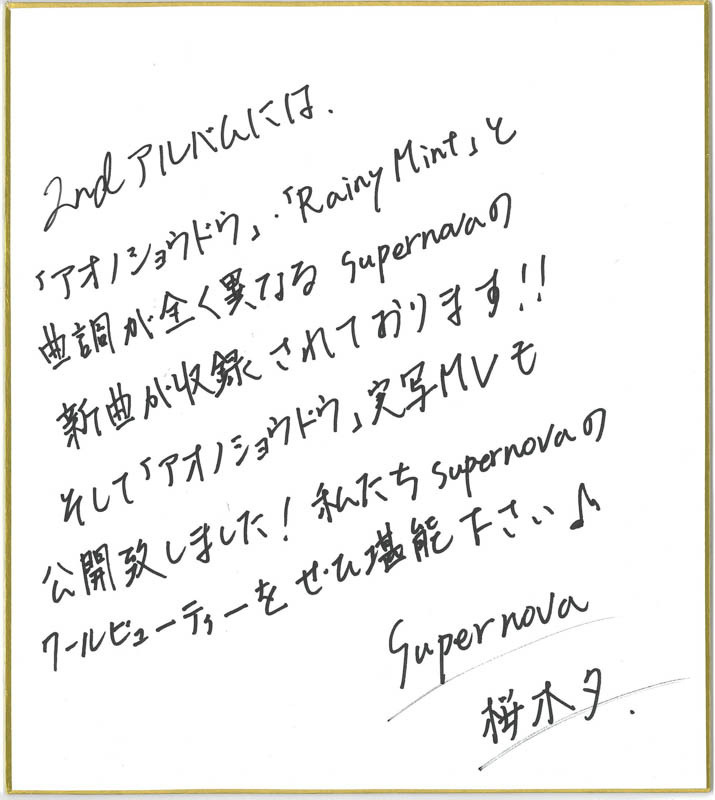 2ndアルバムには、
「アオノショウドウ」・「Rainy Mint」と
曲調が全く異なる supernovaの
新曲が収録されております!!
そして「アオノショウドウ」実写MVも
公開致しました! 私たちsupernovaの
クールビューティーをぜひ堪能下さい♪
Supernova
桜木夕.